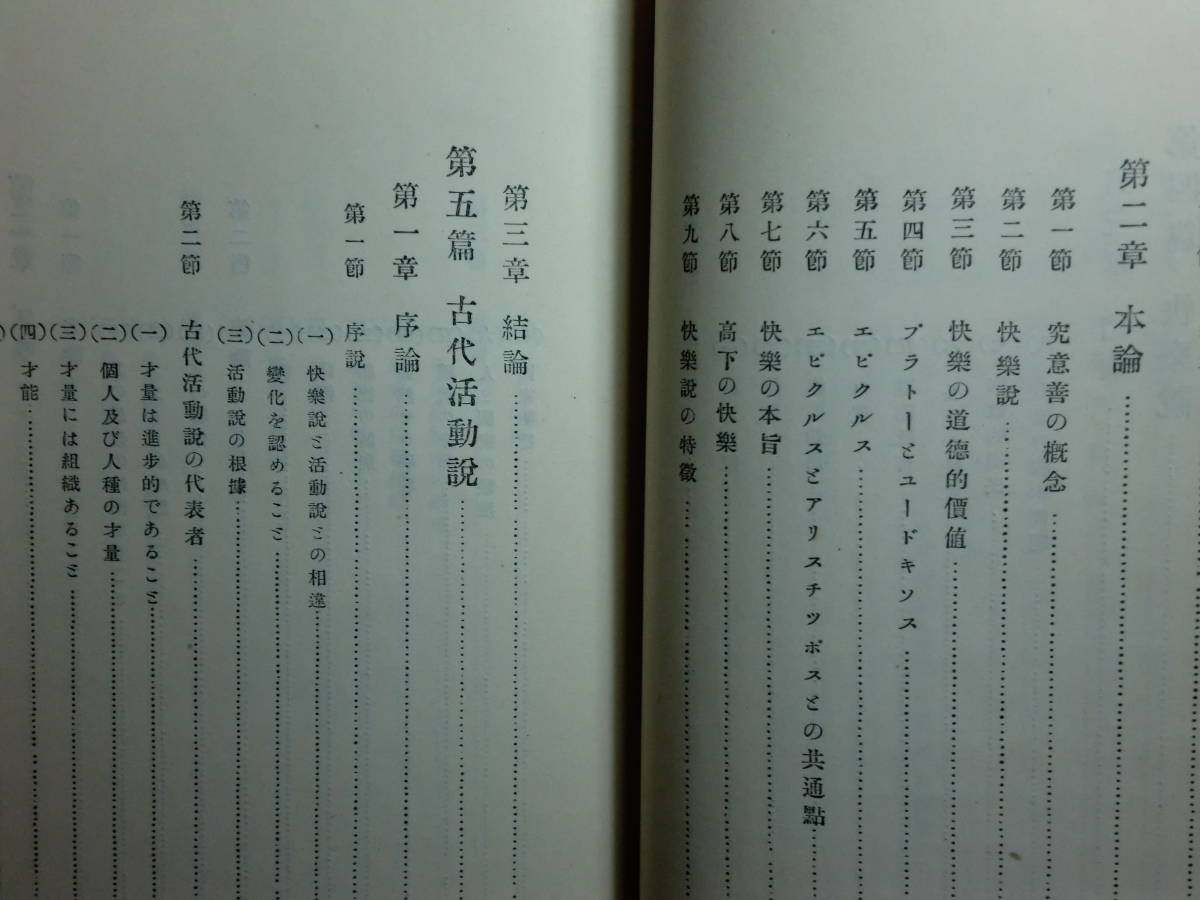 第二章 本論
第一節 究意善の概念
第二節 快樂說
第三節 快樂の道德的價値
第四節 プラトーとユードキソス
第五節 エピクルス
第六節 エピクルスとアリスチツポスとの共通點
第七節 快樂の本旨
第八節 高下の快樂
第九節 快樂說の特徵
第三章 結論
第五篇 古代活動說
第一章 序論
第一節 序說
(一) 快樂說と活動說との相違
(二) 變化を認めること
(三) 活動說の根據
第二節 古代活動說の代表者
(一) 才量は進步的であること
(二) 個人及び人種の才量
(三) 才量には組織あること
(四) 才能